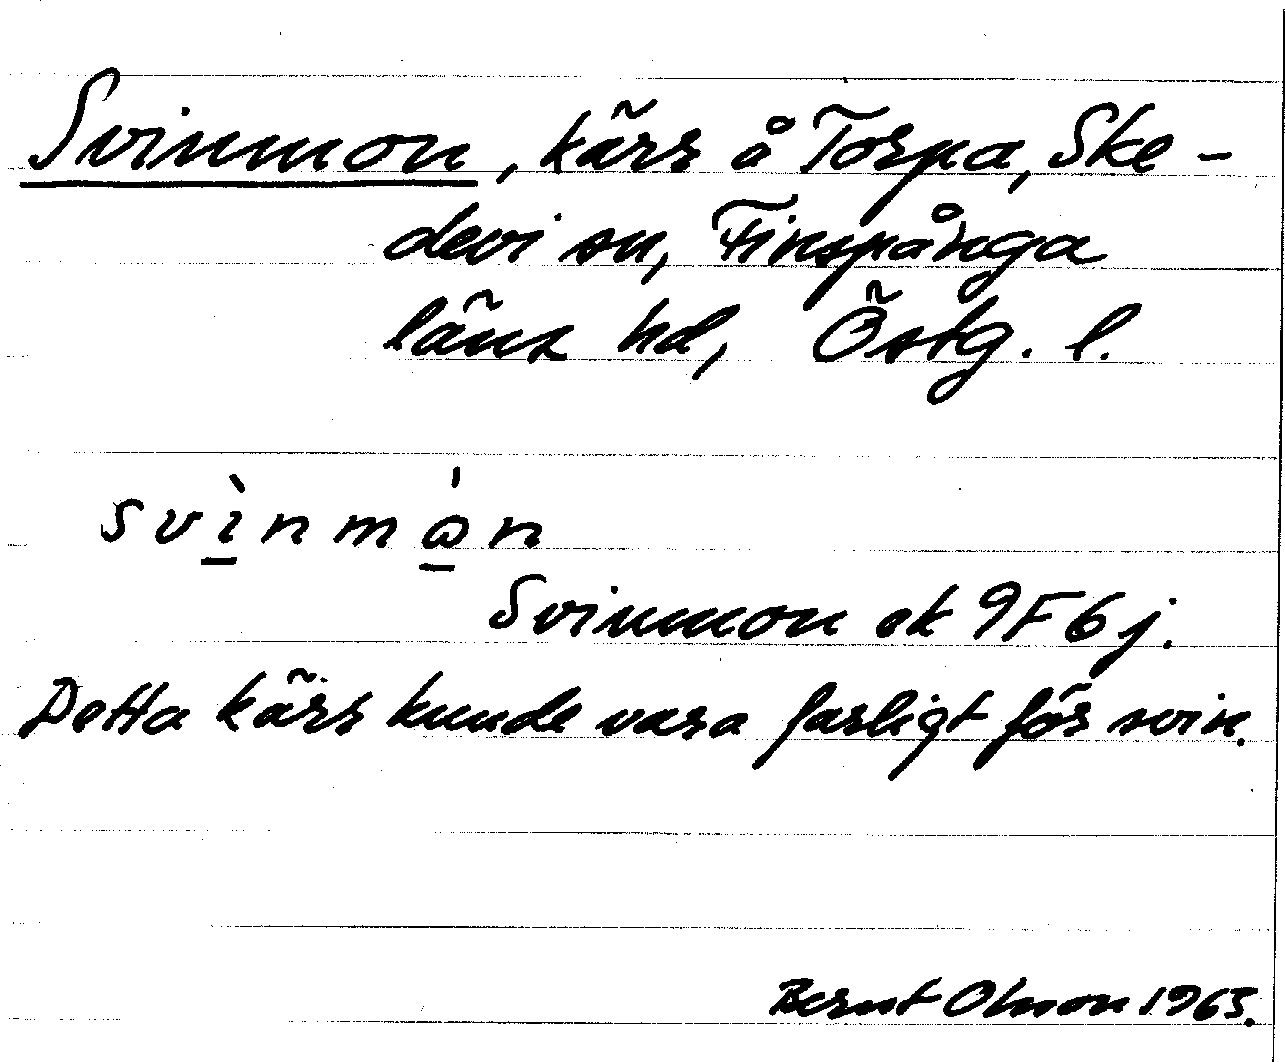 Svinmon, kärr å Torpa, Ske-
devi sn, Finspånga
läns hd, Östg. l.
svìnmo̱̍n
Svinmon ek 9F6j.
Detta kärr kunde vara farligt för svin.
Bernt Olsson 1963.